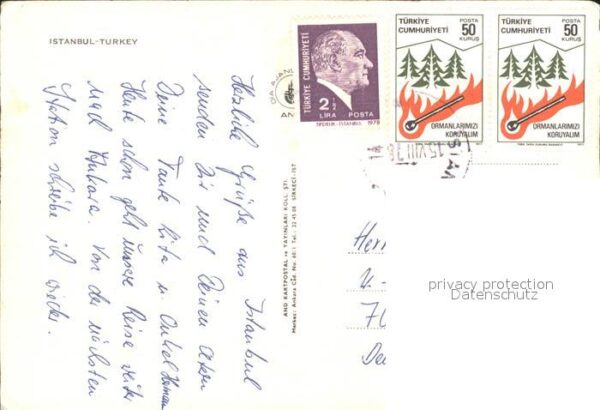 ISTANBUL-TURKEY
Herzliche Grüße aus Istanbul
senden Dir und Deinen Eltern
Deine Tante Lita u. Onkel
Heute schon geht unsere Reise weiter
nach Ankara. Von der nächsten
Station schreibe ich wieder.
AND KARTPOSTAL ve YAYINLARI KOLL. ŞTİ.
Merkez: Ankara Cad. No: 60/1 Tel.: 22 45 08 SİRKECİ-İST
TÜRKİYE CUMHURİYETİ
2½
LİRA POSTA
1978
TÜRKİYE POSTA
CUMHURİYETİ 50
KURUŞ
ORMANLARIMIZI
KORUYALIM
1977
TÜRKİYE POSTA
CUMHURİYETİ 50
KURUŞ
ORMANLARIMIZI
KORUYALIM
1977
15 VIII 78
Herr
privacy protection
Datenschutz